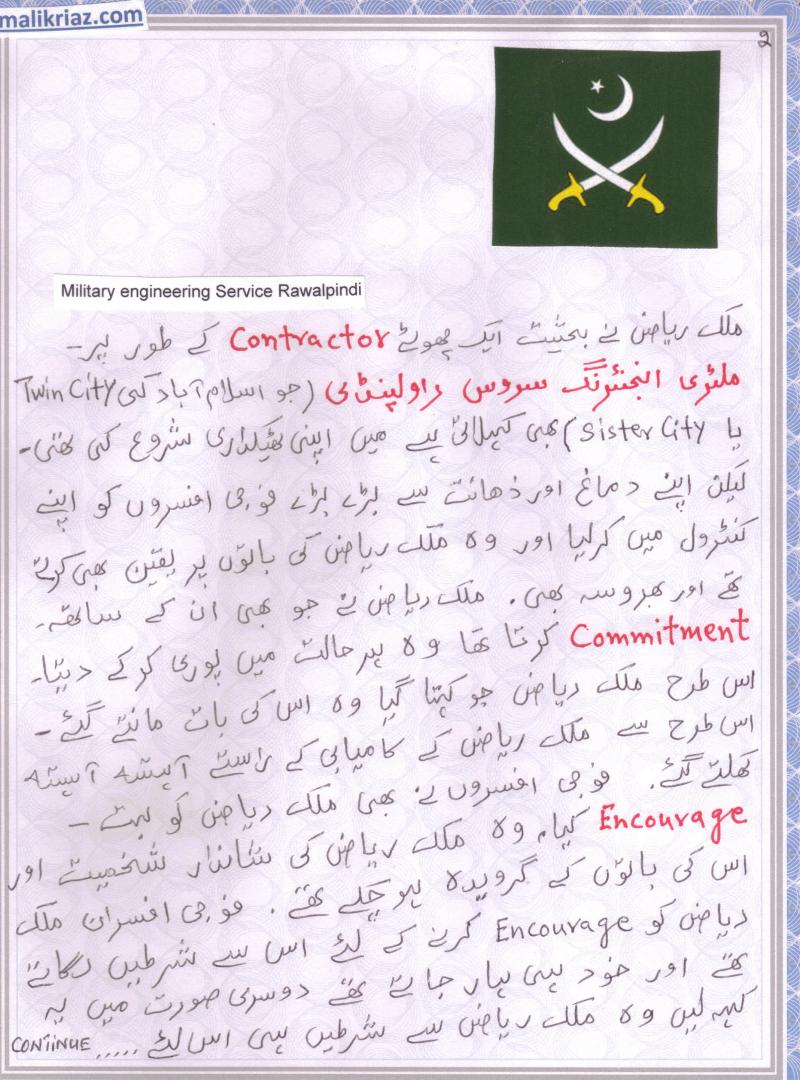 malikriaz.com
2
Military engineering Service Rawalpindi
ملک ریاض نے بحثیت ایک چھوٹے Contractor کے طور پر۔
ملٹری انجنئرنگ سروس راولپنڈی (جو اسلام آباد کی Twin City
یا Sister City) بھی کہلاتی ہے میں اپنی ٹھیکداری شروع کی تھی۔
لیکن اپنے دماغ اور ذھانت سے بڑے بڑے فوجی افسروں کو اپنے
کنٹرول میں کرلیا اور وہ ملک ریاض کی باتوں پر یقین بھی کرتے
تھے اور بھروسہ بھی۔ ملک ریاض نے جو بھی ان کے ساتھ۔
Commitment کرتا تھا وہ ہر حالت میں پوری کر کے دیتا۔
اس طرح ملک ریاض جو کہتا گیا وہ اس کی بات مانتے گئے۔
اس طرح سے ملک ریاض کے کامیابی کے راستے آہستہ آہستہ
کھلتے گئے۔ فوجی افسروں نے بھی ملک ریاض کو بہت۔
Encourage کیا۔ وہ ملک ریاض کی شاندار شخصیت اور
اس کی باتوں کے گرویدہ ہو چکے تھے۔ فوجی افسران ملک
ریاض کو Encourage کرنے کے لئے اس سے شرطیں لگاتے
تھے اور خود ہی ہار جاتے تھے دوسری صورت میں یہ
کہہ لیں وہ ملک ریاض سے شرطیں ہی اس لئے ..... CONTiiNUE